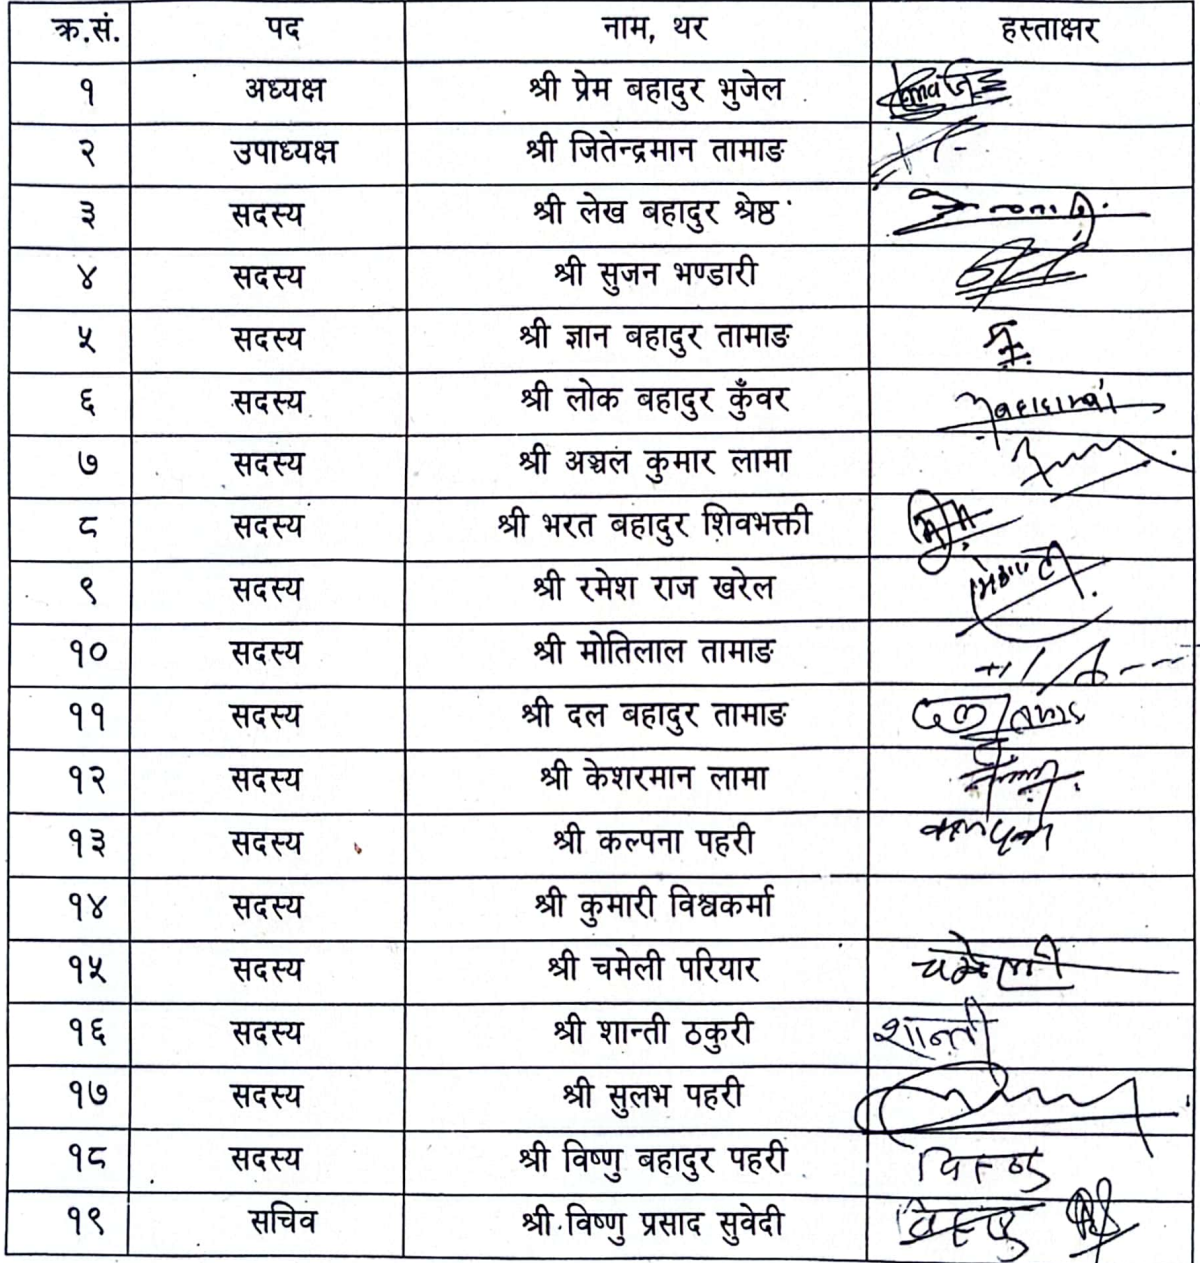 क्र.सं. पद नाम, थर हस्ताक्षर
१ अध्यक्ष श्री प्रेम बहादुर भुजेल
२ उपाध्यक्ष श्री जितेन्द्रमान तामाङ
३ सदस्य श्री लेख बहादुर श्रेष्ठ
४ सदस्य श्री सुजन भण्डारी
५ सदस्य श्री ज्ञान बहादुर तामाङ
६ सदस्य श्री लोक बहादुर कुँवर
७ सदस्य श्री अञ्चल कुमार लामा
८ सदस्य श्री भरत बहादुर शिवभक्ती
९ सदस्य श्री रमेश राज खरेल
१० सदस्य श्री मोतिलाल तामाङ
११ सदस्य श्री दल बहादुर तामाङ
१२ सदस्य श्री केशरमान लामा
१३ सदस्य श्री कल्पना पहरी
१४ सदस्य श्री कुमारी विश्वकर्मा
१५ सदस्य श्री चमेली परियार चमेली
१६ सदस्य श्री शान्ती ठकुरी शान्ती
१७ सदस्य श्री सुलभ पहरी
१८ सदस्य श्री विष्णु बहादुर पहरी
१९ सचिव श्री विष्णु प्रसाद सुवेदी